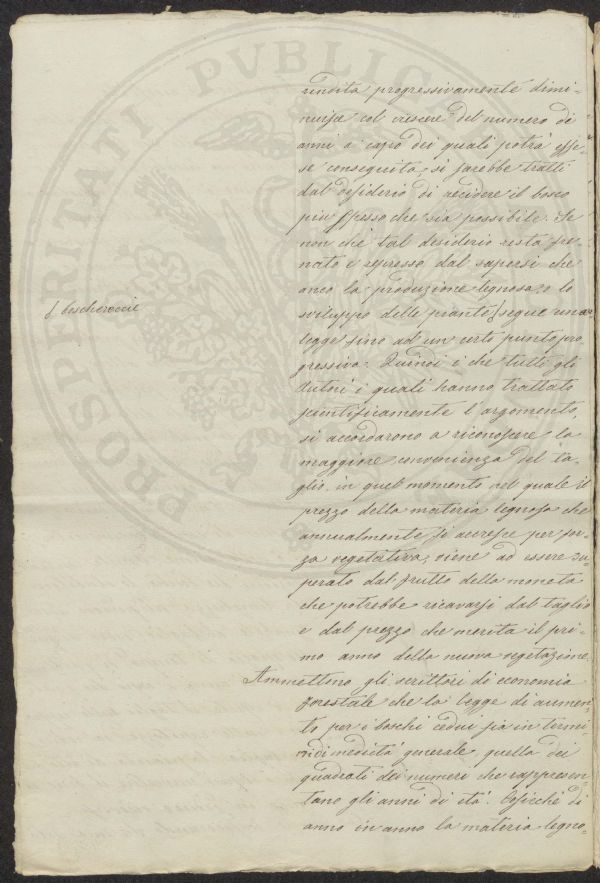 PROSPERITATI PVBLICAE
rendita progressivamente dimi-
nuisce col crescere del numero di
anni a capo dei quali potrà esse-
re conseguita, si sarebbe tratti
dal desiderio di recidere il bosco
più spesso che sia possibile. Se
non che tal desiderio resta fre-
nato e represso dal sapersi che
anco la produzione legnosa, o lo
sviluppo delle piante segue una
legge sino ad un certo punto pro
gressiva. Quindi è che tutti gli
Autori i quali hanno trattato
scientificamente l'argomento,
si accordarono a riconoscere la
maggiore convenienza del ta-
glio in quel momento nel quale il
prezzo della materia legnosa che
annualmente si accresce per for-
za vegetativa, viene ad essere su-
perato dal frutto della moneta
che potrebbe ricavarsi dal taglio
e dal prezzo che merita il pri-
mo anno della nuova vegetazione.
Ammettono gli scrittori di economia
forestale che la legge di aumen
to per i boschi cedui sia in termi
ni di medietà generale quella dei
quadrati dei numeri che rappresen
tano gli anni di età. Cosicchè di
anno in anno la materia legno-
boschereccie